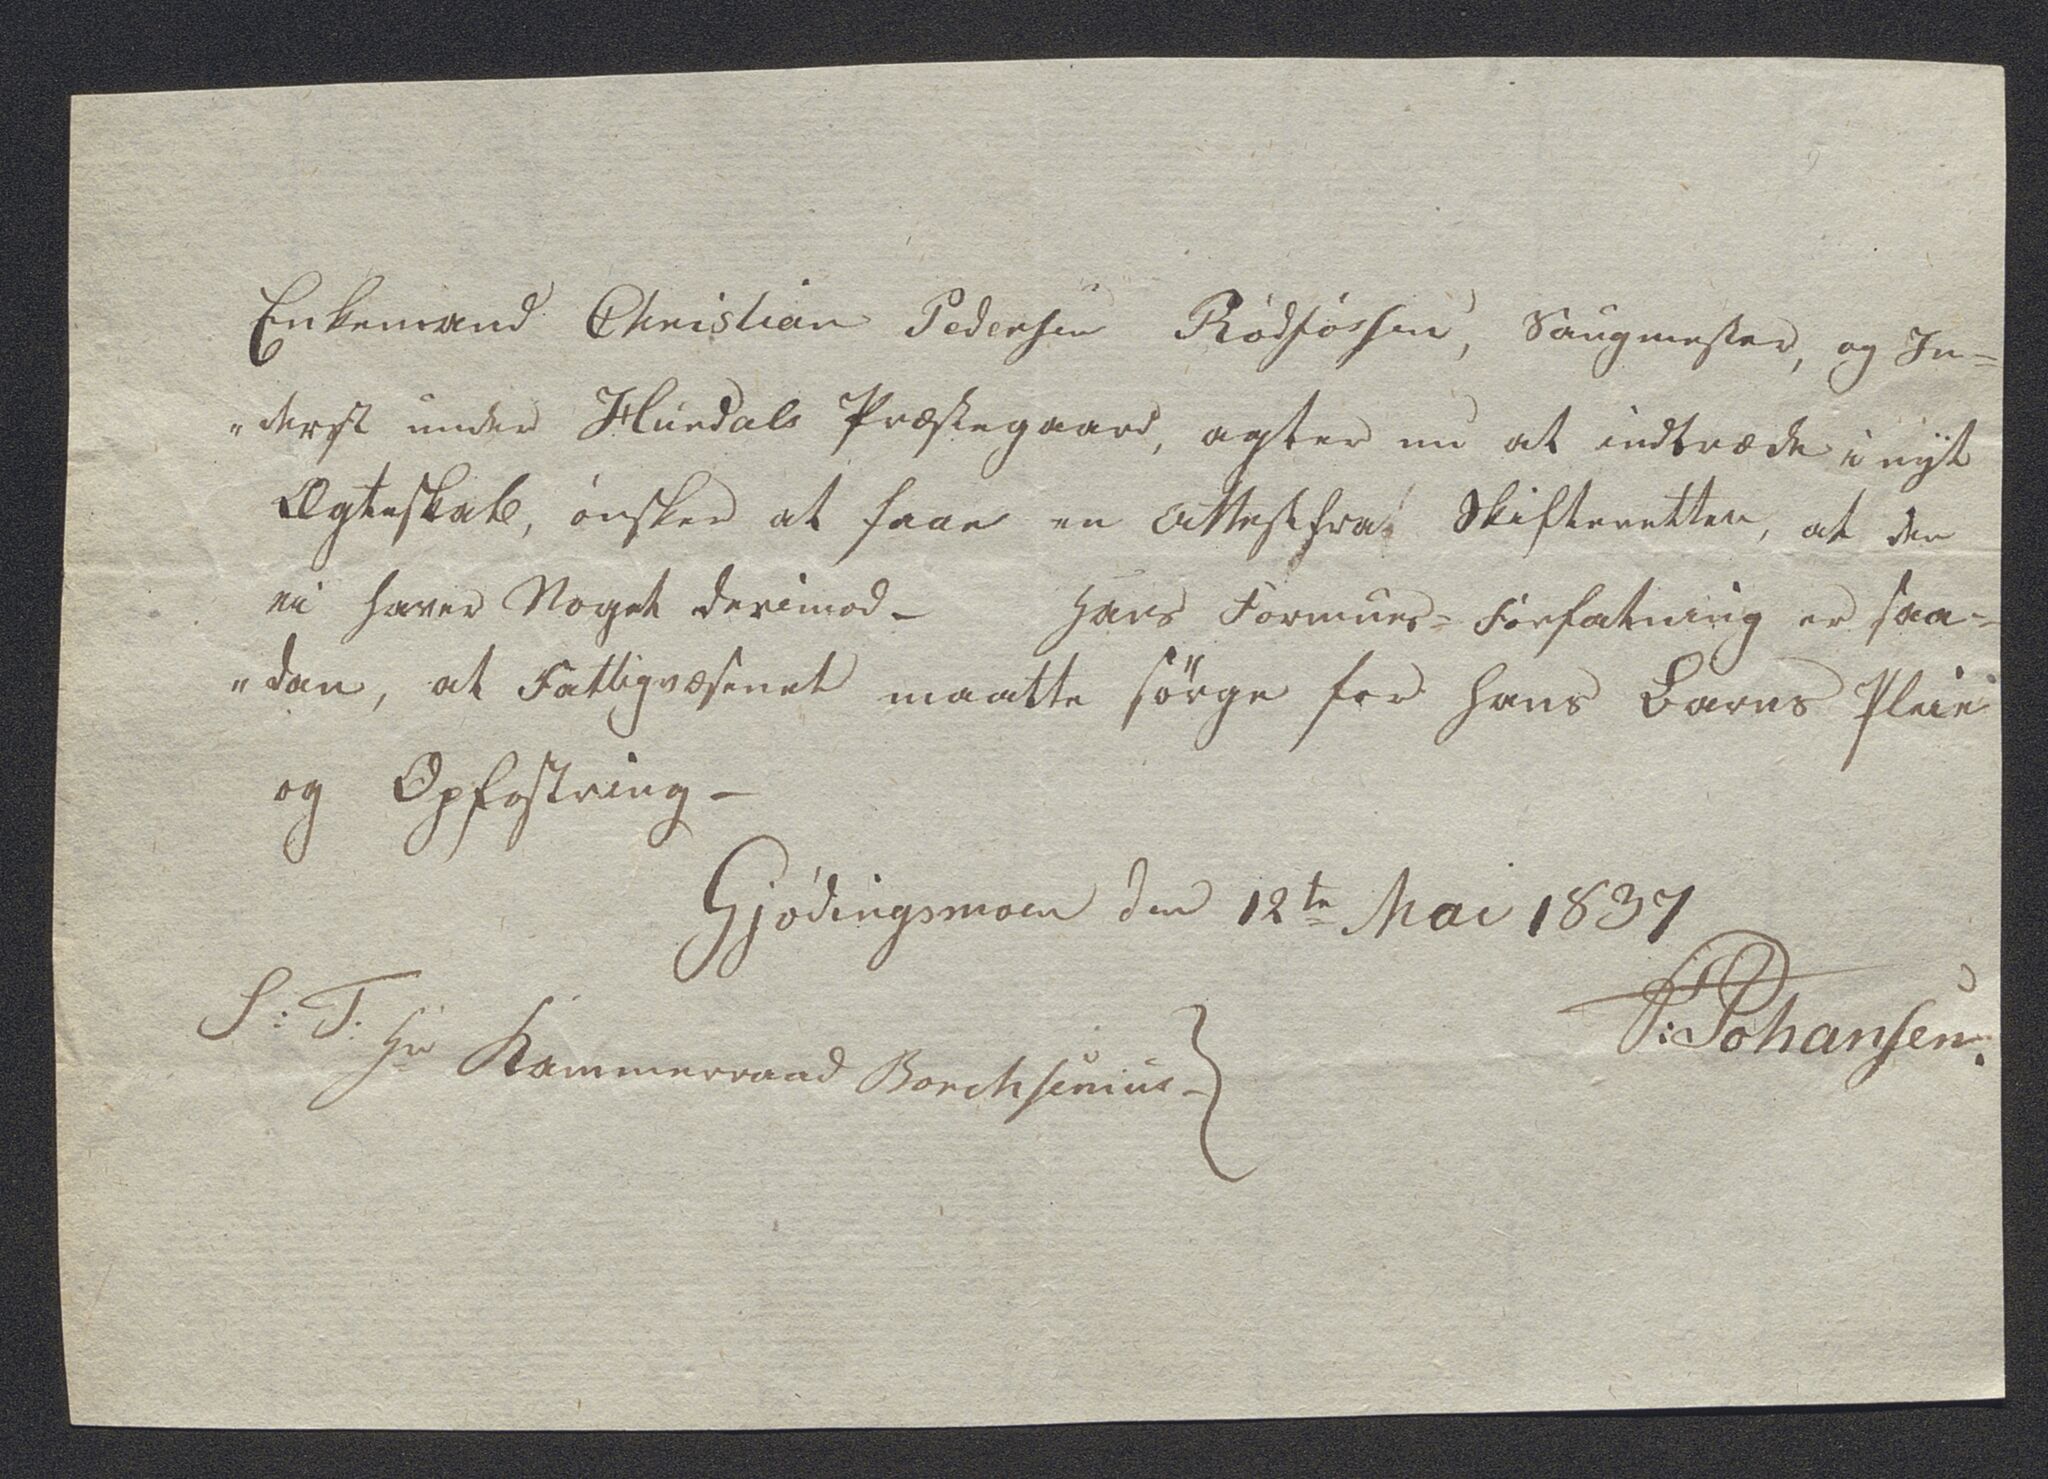 Enkemand Christian Pedersen Rødfossen, Saugmester, og In=
"derst under Hurdals Præstegaard, agter nu at indtræde i nÿt
Ægteskab, ønsker at faae en Attest fra Skifteretten, at den
ei haver Noget derimod – Hans Formues=Forfatning er saa=
"dan, at Fattigvæsenet maatte sörge for hans Barns Pleie
og Opfostring –
Gjødingsmoen den 12te Mai 1837
P: Johansen.
S: T: Hr Kammerraad Borchsenius –